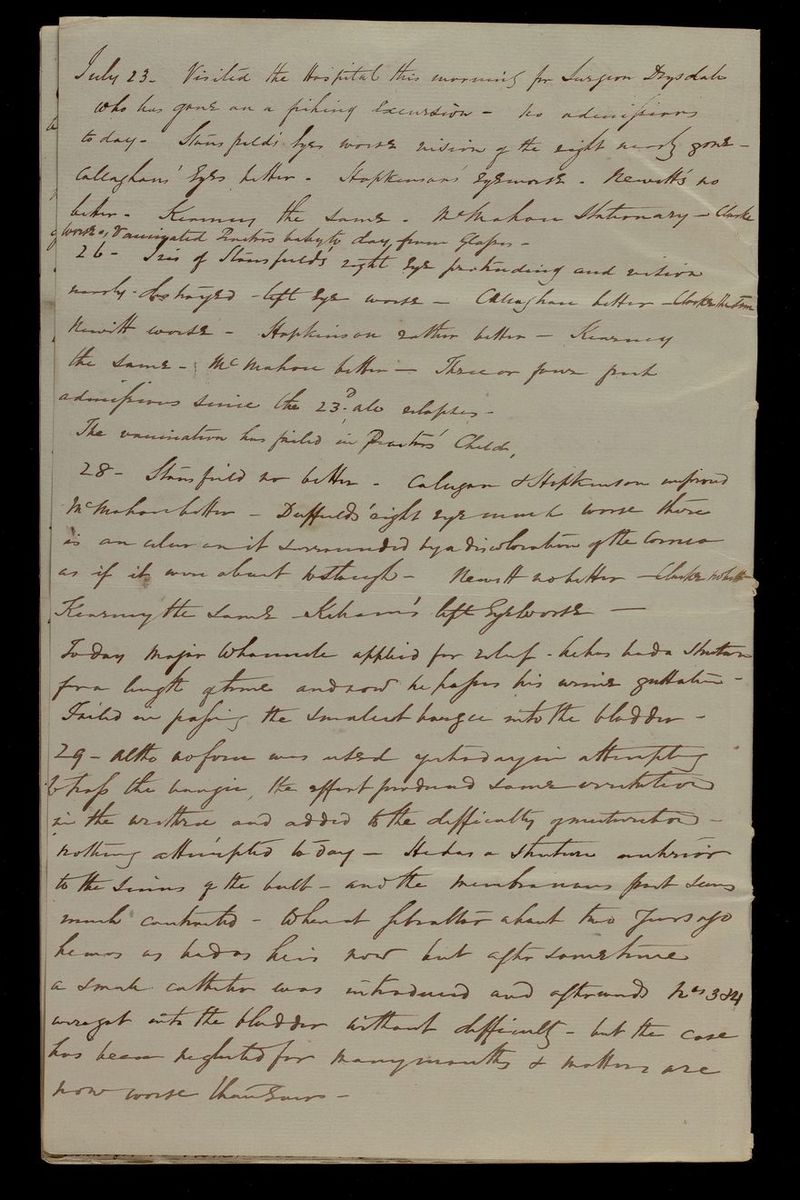 July 23 - Visited the Hospital this morning for Surgeon Drysdale
who has gone on a fishing excursion - no admissions
to day - Stansfield's Eyes worse vision of the right nearly gone -
Callaghans' Eyes better - Hopkinsons' Eye worse - Newitt's no
better - Kearney the same - McMahon Stationary - Clarke
worse, Vaccinated Proctors baby to day, from Glasses -
26 - Iris of Stansfield's right Eye protruding and vision
nearly destroyed - left Eye worse - Callaghan better - Clarke the same
Newitt worse - Hopkinson rather better - Kearney
the same - McMahon better - Three or four fresh
admissions since the 23d. also relapses -
The vaccination has failed in Proctors' Child,
28 - Stansfield no better - Calligan & Hopkinson improved
McMahon better - Duffield's right eye much worse there
is an ulcer on it surrounded by a discoloration of the Cornea
as if it were about to slough - Newitt no better - Clarke no better
Kearney the same - left Eye worse -
To day Major applied for relief - he has had a stricture
for a length of time and now he passes his urine guttatim -
Failed in passing the smallest bougie into the bladder -
29 - altho no force was used yesterday in attempting
to pass the bougie, the effort produced some irritation
in the urethra and added to the difficulty of micturition -
nothing attempted to day - He has a stricture anterior
to the sinus of the bulb - and the membranous part seems
much contracted - When at Gibraltar about two years ago
he was as bad as he is now but after some time
a small catheter was introduced and afterwards Nos 3 & 4
were got into the bladder without difficulty - but the case
has been neglected for many months & matters are
now worse than Ever -